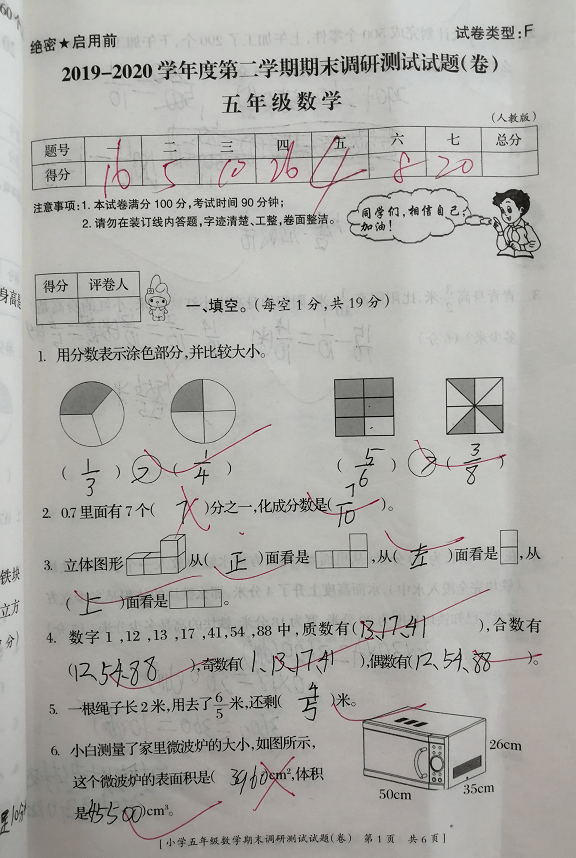 绝密★启用前
试卷类型:F
2019-2020学年度第二学期期末调研测试试题(卷)
五年级数学
(人教版)
题号 一 二 三 四 五 六 七 总分
得分 16 5 10 26 4 8 20
注意事项:1.本试卷满分100分,考试时间90分钟;
2.请勿在装订线内答题,字迹清楚、工整,卷面整洁。
同学们,相信自己,
加油!
得分 评卷人
一、填空。(每空1分,共19分)
1. 用分数表示涂色部分,并比较大小。
(1/3) > (1/4) (5/6) > (3/8)
2. 0.7里面有7个( 7 )分之一,化成分数是( 7/10 )。
3. 立体图形 从( 正 )面看是 ,从( 左 )面看是 ,从
( 上 )面看是 。
4. 数字1,12,13,17,41,54,88中,质数有(13、17、41),合数有
(12、54、88),奇数有(1、13、17、41),偶数有(12、54、88)。
5. 一根绳子长2米,用去了6/5米,还剩( 4/5 )米。
6. 小白测量了家里微波炉的大小,如图所示,
这个微波炉的表面积是( 3960 )cm²,体积
是(45500)cm³。
26cm
50cm
35cm
[小学五年级数学期末调研测试试题(卷) 第1页 共6页]